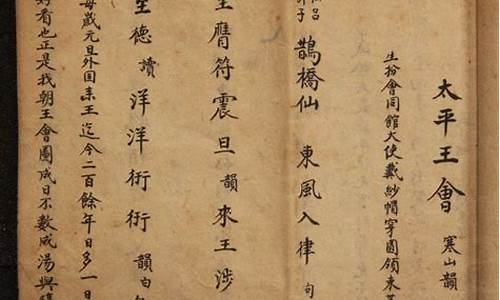 太平王會 寒山韻
生扮會同館大使戴紗帽穿圓領束
鵲橋仙 東風入律 句
王膺符震旦 韻 來王涉
生德 讀 洋洋術術 韻 白
每歲元旦外國來王迄今二百餘年日多一日
好看也正是找朝王會圖成日不數成湯與